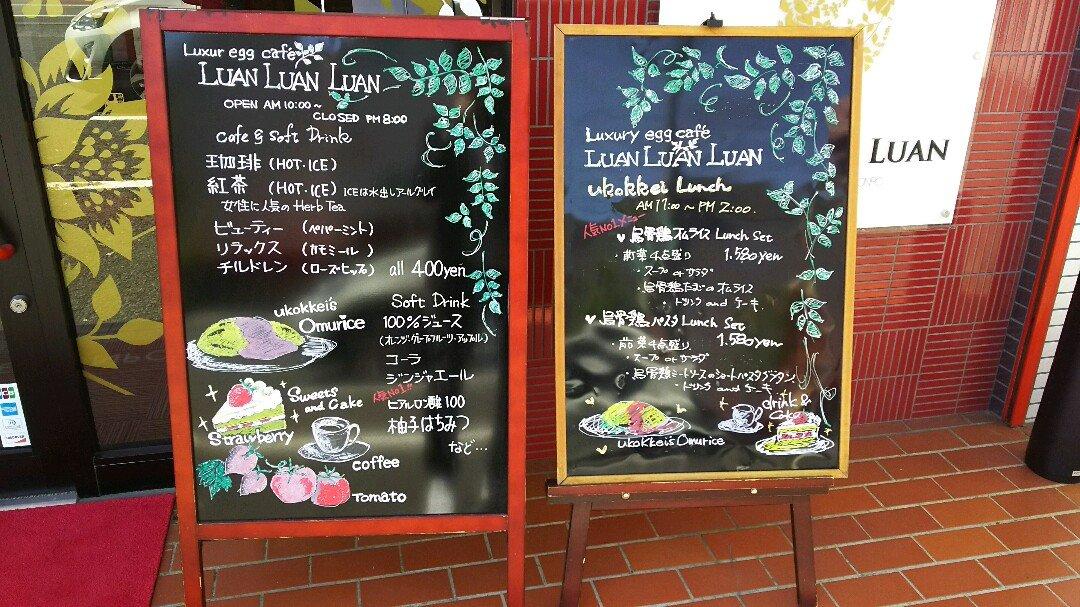 Luxur egg café
LUAN LUAN LUAN
OPEN AM 10:00～
CLOSED PM 8:00
Cafe & Soft Drink
珈琲 (HOT・ICE)
紅茶 (HOT・ICE) ICEは水出しアールグレイ
女性に人気の Herb Tea
ビューティー (ペパーミント)
リラックス (カモミール)
チルドレン (ローズ・ヒップ) all 400yen
ukokkei's
Omurice
Soft Drink
100%ジュース
(オレンジ・グレープフルーツ・アップル)
コーラ
ジンジャエール
人気No1!!
ヒアルロン酸100
柚子はちみつ
など…
Sweets
and Cake
Strawberry
coffee
Tomato
Luxury egg café
LUAN LUAN LUAN
ukokkei Lunch
AM 11:00 ～ PM 2:00
人気NO1メニュー
♥ 烏骨鶏オムライス Lunch Set
・前菜4点盛り 1.580yen
・スープ or サラダ
・烏骨鶏たまごのオムライス
・ドリンク and ケーキ
♥ 烏骨鶏パスタ Lunch Set
・前菜4点盛り 1.580yen
・スープ or サラダ
・烏骨鶏ミートソースのショートパスタグラタン
・ドリンク and ケーキ
drink &
Cake
ukokkei's Omurice
LUAN